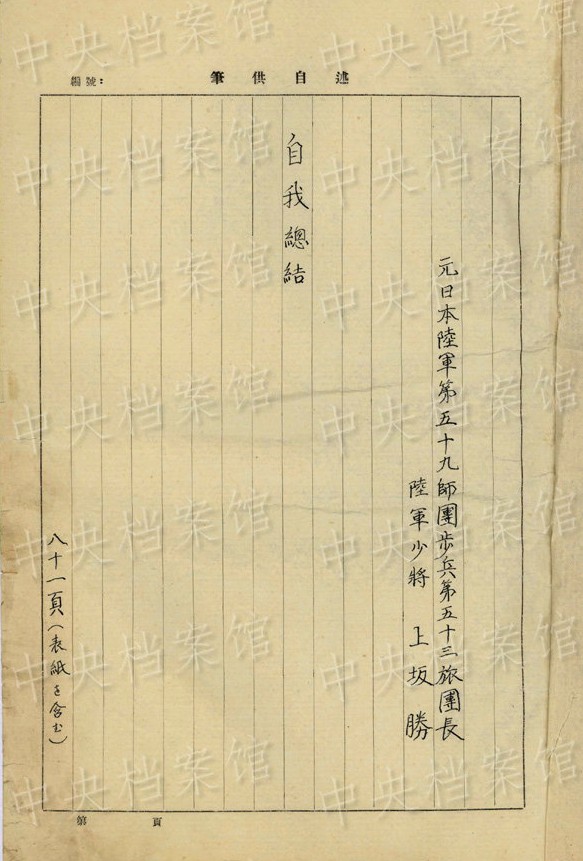 編號：
筆供自述
元日本陸軍第五十九師團歩兵第五十三旅團長
陸軍少將 上坂勝
自我總結
八十一頁（表紙を含む）
第 頁
中央档案馆